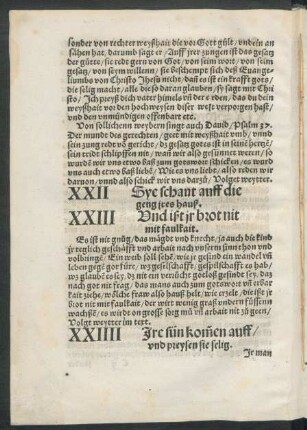 sonder von rechter weyßhait die vor Got gilt/ vnd ein an
sähen hat/ darumb sagt er/ Auff jrer zungen ist das gesatz
der gütte/ sie redt gern von Got/ von seim wort/ von seim
gesatz/ von seym willenn/ sie beschempt sich deß Euange-
liumbs von Christo Jhesu nicht/ daß es ist ein krafft gots/
die selig macht/ alle die so daran glauben/ sy sagt mit Chri
sto/ Ich preyß dich vater himels vñ der erden/ das du dein
weyßhait vor den hochweysen diser welt verporgen hast/
vnd den vnmündigen offenbart etc.
Von sollichenn weybern singt auch Dauid/ Psalm 37.
Der mundt des gerechten/ geet mit weyßhait vmb/ vnnd
sein zung redt võ gericht/ dz gesatz gotes ist in seinē hertzē/
sein tridt schlipffen nit/ wan wir also gesünnet weren/ so
wurde wir vns etwo baß zum gotswort schicken/ es wurd
vns auch etwo baß lieb/ Wie es vns liebt/ also reden wir
darnon/ vnnd also schickt wir vns darzů/ Volget weytter.
XXII Sye schant auff die
geng jres hauß.
XXIII Vnd ißt jr brot nit
mit faulkait.
Es ist nit gnůg/ das mägde vnd knecht/ ja auch die kind
je treglich geschäfft vnd arbait nach vnserm sinn thon vnd
volbringē/ Ein weib soll sehē/ wie jr gesind ein wandel vñ
leben gege got fürt/
wz glaubē es sey/ dz nit ein verrůcht gotloß gesindt sey/ das
nach got nit frag/ das mans auch zum gotswort vñ erbar
kait ziehe/ wölche fraw also hauß helt/ wie erzelt/ die ißt jr
brot nit mir faulkait/ der wirt wenig graß vndern füssenn
wachssē/ es wirdt on grosse sorg mů vñ arbait nit zů geen/
Volgt weytter im text.
XXIIII Jre sün kom̃en auff/
vnd preysen sie selig.
Jr man